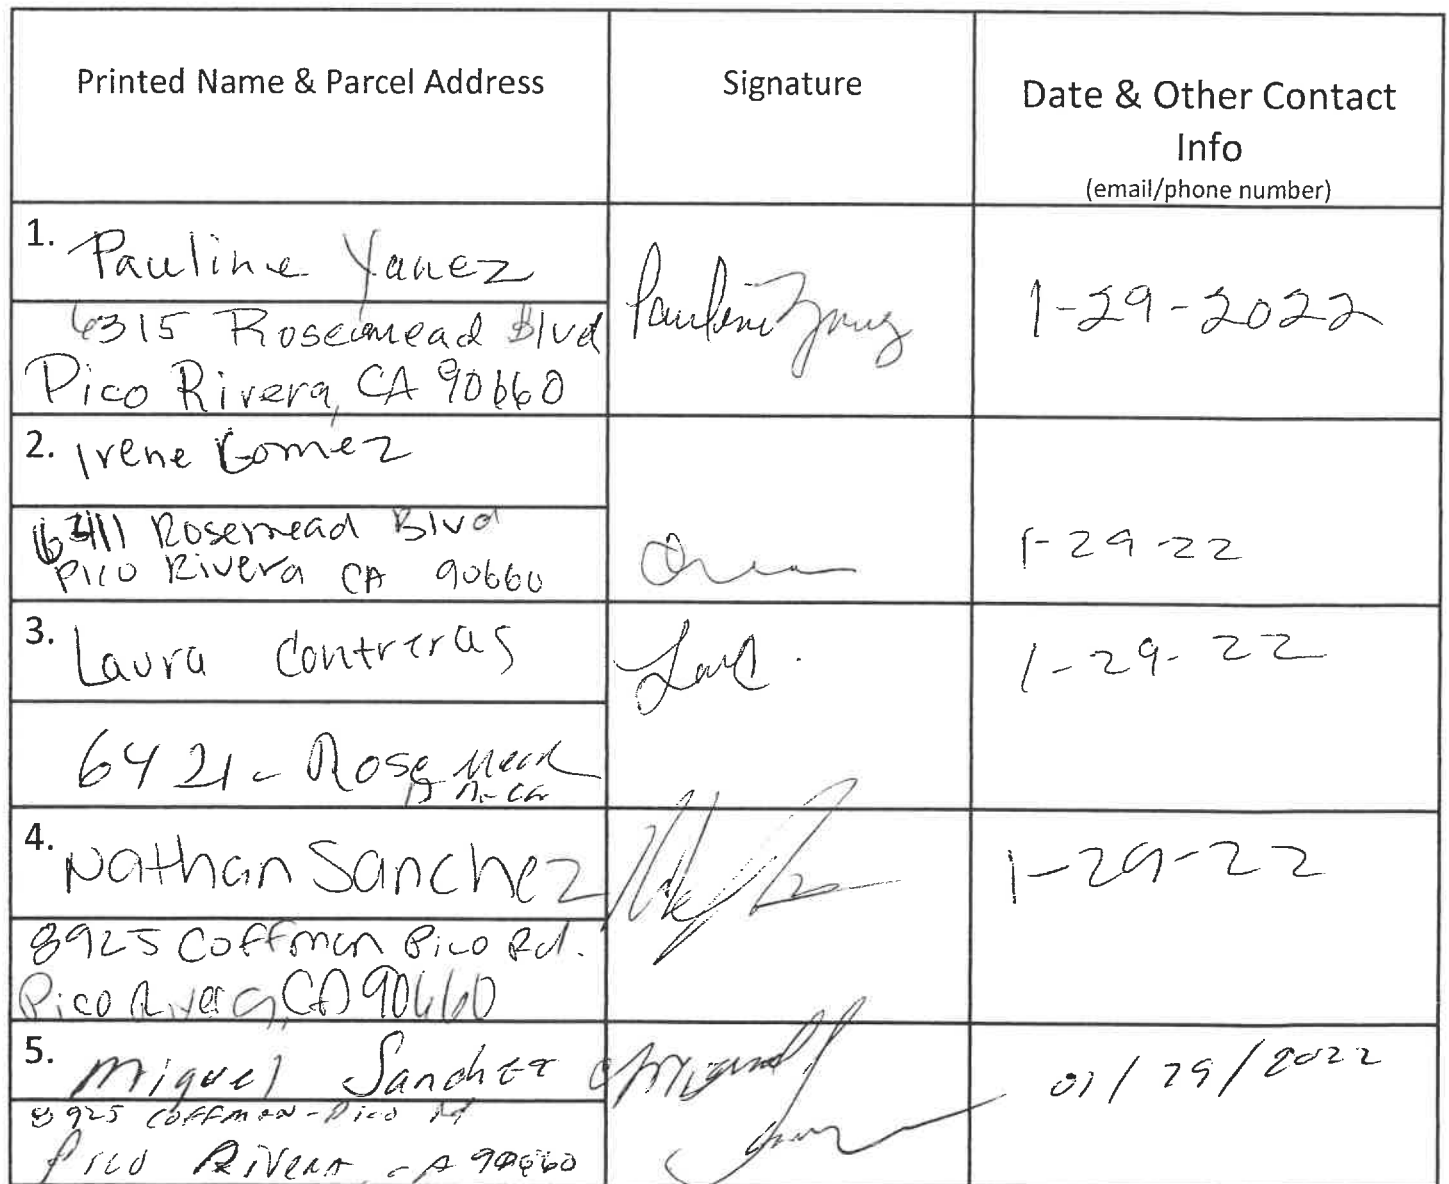 Printed Name & Parcel Address
Signature
Date & Other Contact
Info
(email/phone number)
1. Pauline Yanez
6315 Rosemead Blvd
Pico Rivera, CA 90660
Pauline Yanez
1-29-2022
2. Irene Gomez
Rosemead Blvd
Pico Rivera CA 90660
1-29-22
3. Laura Contreras
6421 - Rosemead
1-29-22
4. Nathan Sanchez
8925 Coffman Pico Rd.
Pico Rivera, CA 90660
1-29-22
5. Miguel Sanchez
8925 Coffman-Pico Rd
Pico Rivera, CA 90660
Miguel
01/29/2022